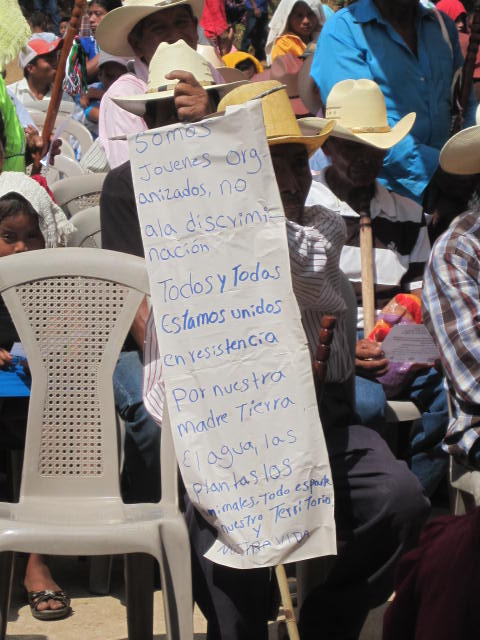 Somos
Jovenes org-
anizados, no
ala discrimi-
nación
Todos y Todas
Estamos unidos
en resistencia
Por nuestra
madre Tierra
El agua, las
plantas los
nimales. Todo es parte
nuestro Territorio
y
NUESTRA VIDA